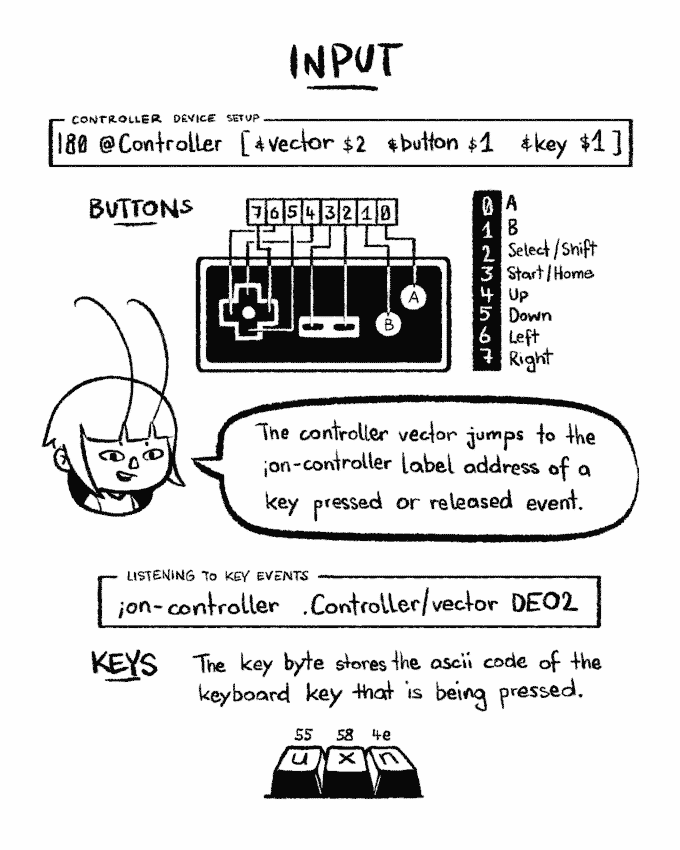 INPUT
CONTROLLER DEVICE SETUP
|80 @Controller [ &vector $2 &button $1 &key $1 ]
BUTTONS
7 6 5 4 3 2 1 0
A
B
0 A
1 B
2 Select/Shift
3 Start/Home
4 Up
5 Down
6 Left
7 Right
The controller vector jumps to the
;on-controller label address of a
key pressed or released event.
LISTENING TO KEY EVENTS
;on-controller .Controller/vector DEO2
KEYS
The key byte stores the ascii code of the
keyboard key that is being pressed.
55 58 4e
u x n